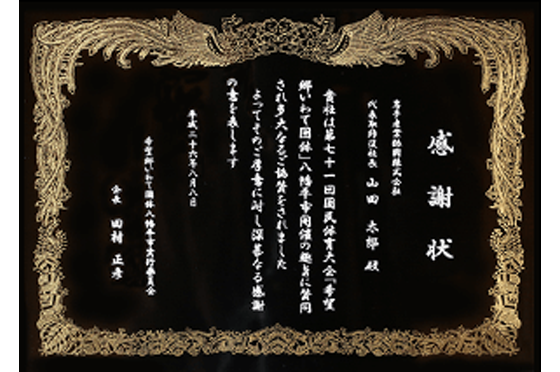 感謝状
岩手産業振興株式会社
代表取締役社長 山田 太郎 殿
貴社は第七十一回国民体育大会「希望
郷いわて国体」八幡平市開催の趣旨に賛同
され多大なるご協賛をされました
よってそのご厚意に対し深甚なる感謝
の意を表します
平成二十六年八月八日
希望郷いわて国体八幡平市実行委員会
会長 田村 正彦